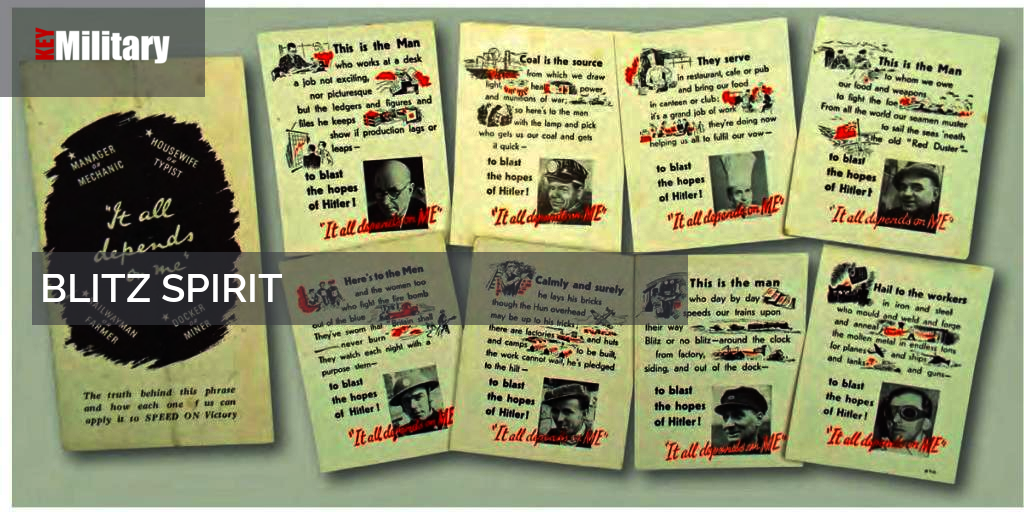 KEY
Military
BLITZ SPIRIT
MANAGER
or
MECHANIC
HOUSEWIFE
or
TYPIST
"It all
depends
me"
FARMER
DOCKER
MINER
The truth behind this phrase
and how each one of us can
apply it to SPEED ON Victory
This is the Man
who works at a desk
a job not exciting,
nor picturesque
but the ledgers and figures and
files he keeps
show if production lags or
leaps—
to blast
the hopes
of Hitler!
"It all depends on ME"
Coal is the source
from which we draw
light, heat, power,
and munitions of war;
so here's to the man
with the lamp and pick
who gets us our coal and gets
it quick—
to blast
the hopes
of Hitler!
"It all depends on ME"
They serve
in restaurant, cafe or pub
and bring our food
in canteen or club;
it's a grand job of work
they're doing now
helping us all to fulfil our vow—
to blast
the hopes
of Hitler!
"It all depends on ME"
This is the Man
to whom we owe
our food and weapons
to fight the foe
From all the world our seamen muster
to sail the seas 'neath
the old "Red Duster"—
to blast
the hopes
of Hitler!
"It all depends on ME"
Here's to the Men
and the women too
who fight the fire bomb
out of the blue
They've sworn that Britain shall
never burn
They watch each night with a
purpose stern—
to blast
the hopes
of Hitler!
"It all depends on ME"
Calmly and surely
he lays his bricks
though the Hun overhead
may be up to his tricks
there are factories and huts
and camps to be built,
the work cannot wait, he's pledged
to the hilt—
to blast
the hopes
of Hitler!
"It all depends on ME"
This is the man
who day by day
speeds our trains upon
their way
Blitz or no blitz—around the clock
from factory,
siding, and out of the dock—
to blast
the hopes
of Hitler!
"It all depends on ME"
Hail to the workers
in iron and steel
who mould and weld and forge
and anneal
the molten metal in endless tons
for planes and ships
and tanks and guns—
to blast
the hopes
of Hitler!
"It all depends on ME"